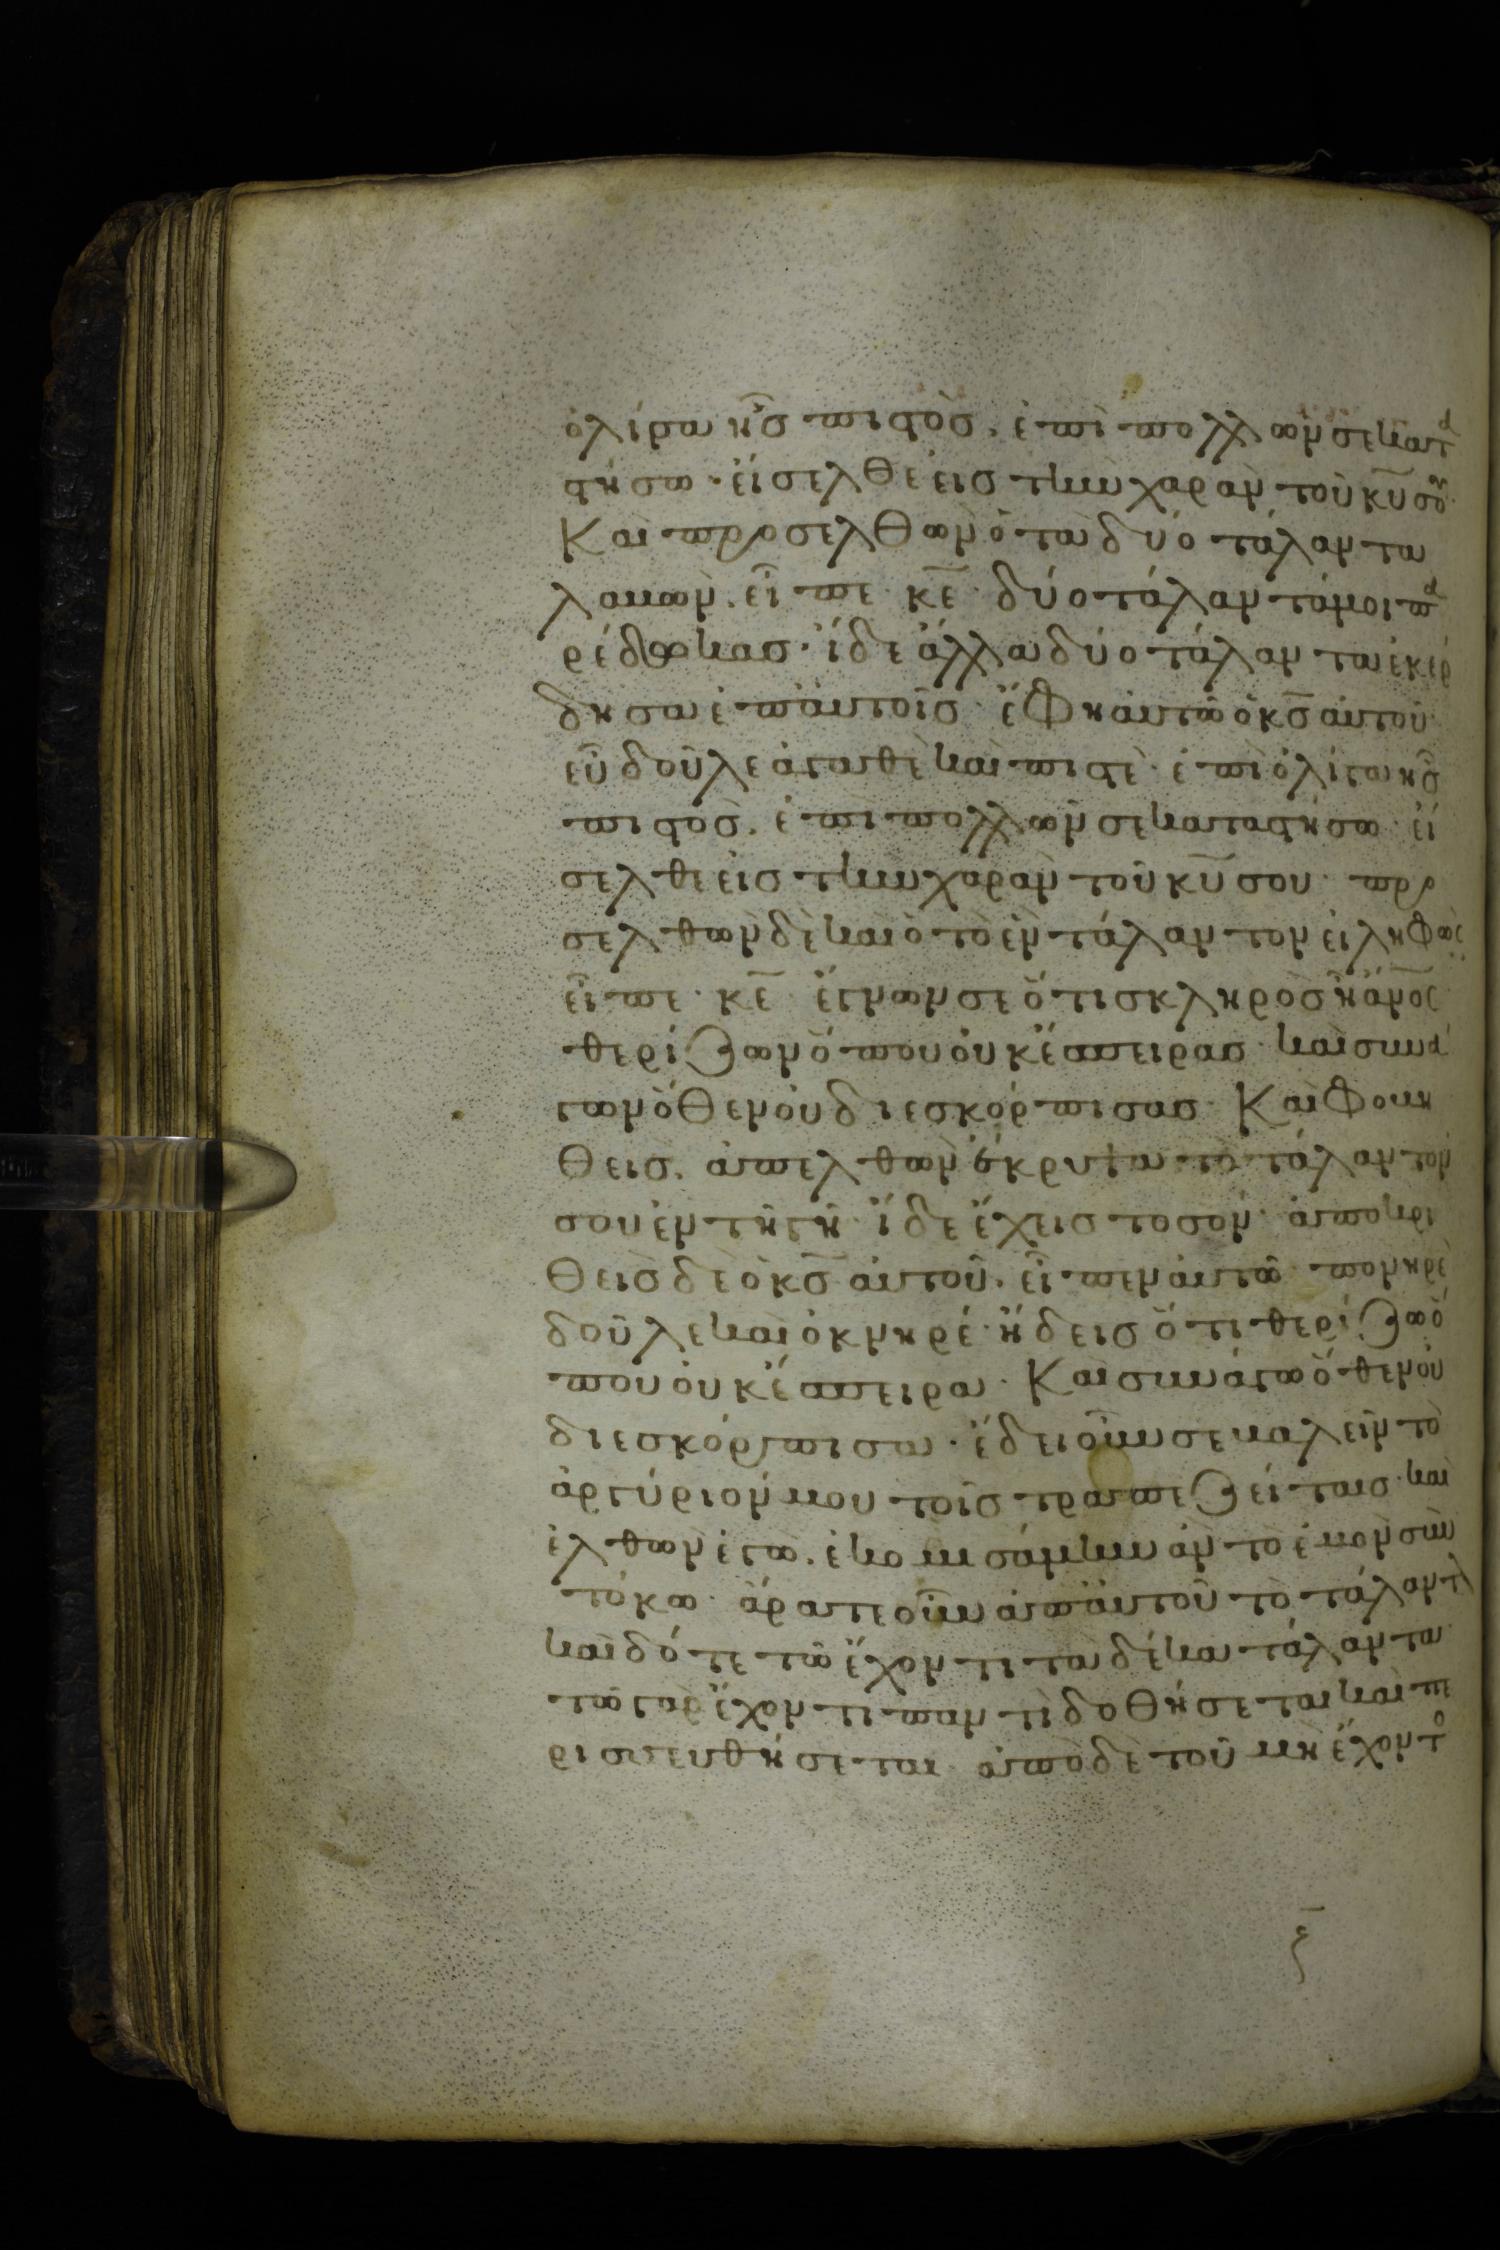 ὀλίγα ἦς πιστὸς. ἐπὶ πολλῶν σε κατα
στήσω. εἴσελθε εἰς τὴν χαρὰν τοῦ κ̅υ̅ σου.
Καὶ προσελθὼν ὁ τὰ δύο τάλαντα
λαβὼν. εἶπε κ̅ε̅ δύο τάλαντά μοι πα
ρέδωκας. ἴδε ἄλλα δύο τάλαντα ἐκέρ
δησα ἐπ' αὐτοῖς. ἔφη αὐτῶ ὁ κ̅ς̅ αὐτοῦ.
εὖ δοῦλε ἀγαθὲ καὶ πιστὲ. ἐπὶ ὀλίγα ἦς
πιστὸς. ἐπὶ πολλῶν σε καταστήσω. εἴ
σελθε εἰς τὴν χαρὰν τοῦ κ̅υ̅ σου. προ
σελθὼν δὲ καὶ ὁ τὸ ἓν τάλαντον εἰληφὼς
εἶπε. κ̅ε̅ ἔγνων σε ὅτι σκληρὸς ἦ α̅ν̅ο̅ς̅
θερίζων ὅπου οὐκ ἔσπειρας. καὶ συνά
γων ὅθεν οὐ διεσκόρπισας. Καὶ φοβη
θεὶς. ἀπελθὼν ἔκρυψα τὸ τάλαντόν
σου ἐν τῆ γῆ. ἴδε ἔχεις το σόν. ἀποκρι
θεὶς δὲ ὁ κ̅ς̅ αὐτοῦ. εἶπεν αὐτῶ. πονηρὲ
δοῦλε καὶ ὀκνηρέ. ἤδεις ὅτι θερίζω ὅ
που οὐκ ἔσπειρα. Καὶ συνάγω ὅθεν οὐ
διεσκόρπισα. ἔδει οὖν σε βαλεῖν τὸ
ἀργύριόν μου τοῖς τραπεζείταις. καὶ
ἐλθὼν ἐγὼ. ἐκομισάμην ἂν τὸ ἐμὸν σὺν
τόκω. ἄρατε οὖν ἀπ' αὐτοῦ τὸ τάλαντον
καὶ δότε τῶ ἔχοντι τὰ δέκα τάλαντα.
τῶ γὰρ ἔχοντι παντὶ δοθήσεται καὶ πε
ρισσευθήσεται. ἀπὸ δὲ τοῦ μὴ ἔχοντο
ξ̅